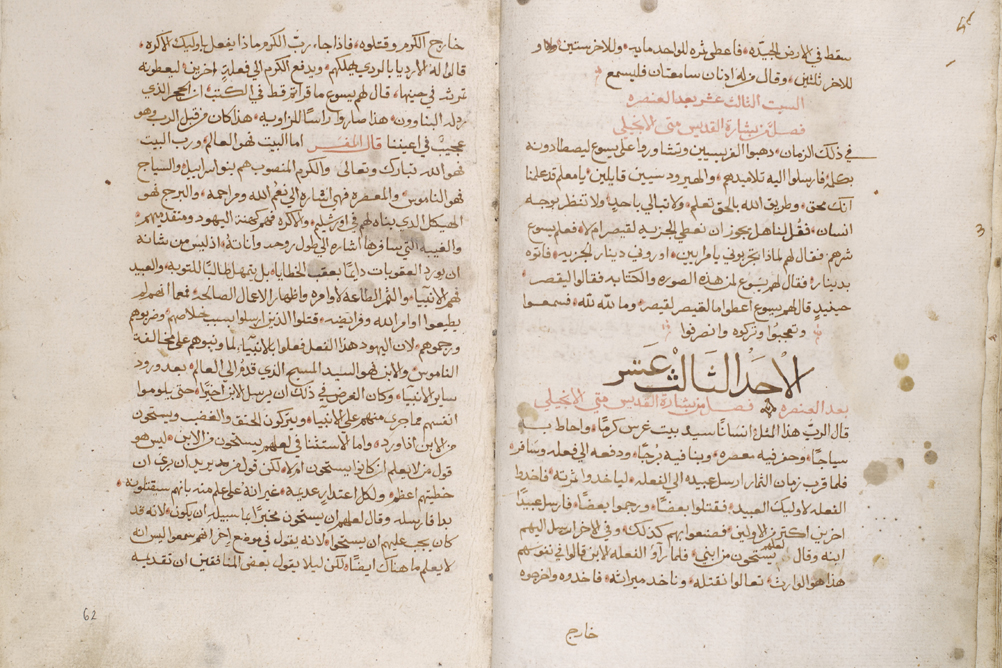 سقط في الارض الجيده فاعطى ثمره للواحد مايه وللاخر ستين ولا و
للاخر ثلثين وقال من له اذنان سامعتان فليسمع
السبت الثالث عشر بعد العنصره
فصل من بشارة القديس متى الانجيلي
في ذلك الزمان دهبوا الفريسيين وتشاوروا على يسوع ليصطادونه
بكلمه فارسلوا اليه تلاميدهم والهيرودسيين قايلين يامعلم قد علمنا
انك محق وطريق الله بالحق تعلم ولا تبالي باحد ولا تنظر بوجه
انسان فقل لنا هل يجوز ان نعطي الجزيه لقيصر ام لا فعلم يسوع
شرهم فقال لهم لماذا تجربوني يامرايين اوروني دينار الجزيه فاتوه
بدينار فقال لهم يسوع لمن هذه الصوره والكتابه فقالوا لقيصر
حينيد قال لهم يسوع اعطوا ما لقيصر لقيصر وما لله لله فسمعوا
وتعجبوا وتركوه وانصرفوا
الاحد الثالث عشر
بعد العنصره فصل من بشارة القديس متى الانجيلي
قال الرب هذا المثل انسانا سيد بيت غرس كرما واحاط به
سياجا وحفر فيه معصره وبنا فيه برجا ودفعه الى فعله وسافر
فلما قرب زمان الثمار ارسل عبيده الى الفعله لياخدوا ثمرته فاخدوا
الفعله لاوليك العبيد فقتلوا بعضا ورجموا بعضا فارسل عبيدا
اخرين اكثر من الاولين فصنعوا بهم كدلك وفي الاخر ارسل اليهم
ابنه وقال لعلهم يستحون من ابني فلما راوا الفعله الابن قالوا في نفوسهم
هذا هو الوارث تعالوا نقتله وناخد ميراثه فاخدوه واخرجوه
خارج
خارج الكرم وقتلوه فاذا جا رب الكرم ماذا يفعل باوليك الاكره
قالوا له الارديا بالردي يهلكهم ويدفع الكرم الى فعلة اخرين ليعطونه
ثمرته في حينها قال لهم يسوع ما قراتم قط في الكتب ان الحجر الذي
ردله البناوون هذا صار راسا للزاويه هذا كان من قبل الرب وهو
عجيب في اعيننا قال المفسر اما البيت فهو العالم ورب البيت
فهو الله تبارك وتعالى والكرم المنصوب هم بنو اسراييل والسياج
فهو الناموس والمعصره فهي اشاره الى نعم الله ومراحمه والبرج فهو
الهيكل الذي بناه لهم في اورشليم والاكره فهم كهنة اليهود ومتقدميهم
والغيبه التي سافرها اشاره الى طول روحه واناته اذ ليس من شانه
ان يورد العقوبات دايما بعقب الخطايا بل يتمهل طالبا للتوبه والعبيد
فهم الانبيا والثمر الطاعه لاوامره واظهار الاعمال الصالحه فما انهم لم
يطيعوا اوامر الله وفرايضه قتلوا الذين ارسلوا بسبب خلاصهم وضربوهم
ورجموهم لان اليهود هذا الفصل فعلوا بالانبيا لما ونبوهم على مخالفة
الناموس والابن فهو السيد المسيح الذي قدم الى العالم بعد ورود
ساير الانبيا وكان الغرض في ذلك ان يرسل الابن اخيرا حتى يلوموا
انفسهم مما جرى منهم على الانبيا ويتركون الحنق والغضب ويستحون
من الابن اذا ورد واما الاستثنا في لعلهم يستحون من الابن ليس هو
قول من لا يعلم ان كانوا يستحون ام لا لكن قول من يريد ان يري ان
خطيتهم اعظم ولكل اعتدار عديمه غير انه على علم منه بانهم سيقتلونه
بدا فارسله وقال لعلهم ان يستحون مخبرا بما سبيله ان يكون لانه قد
كان يجب عليهم ان يستحوا لانه يقول في موضع اخر لعلهم سمعوا ليس انه
لا يعلم ما هناك ايضا لكن ليلا يقول بعض المنافقين ان تقدميه
62
3